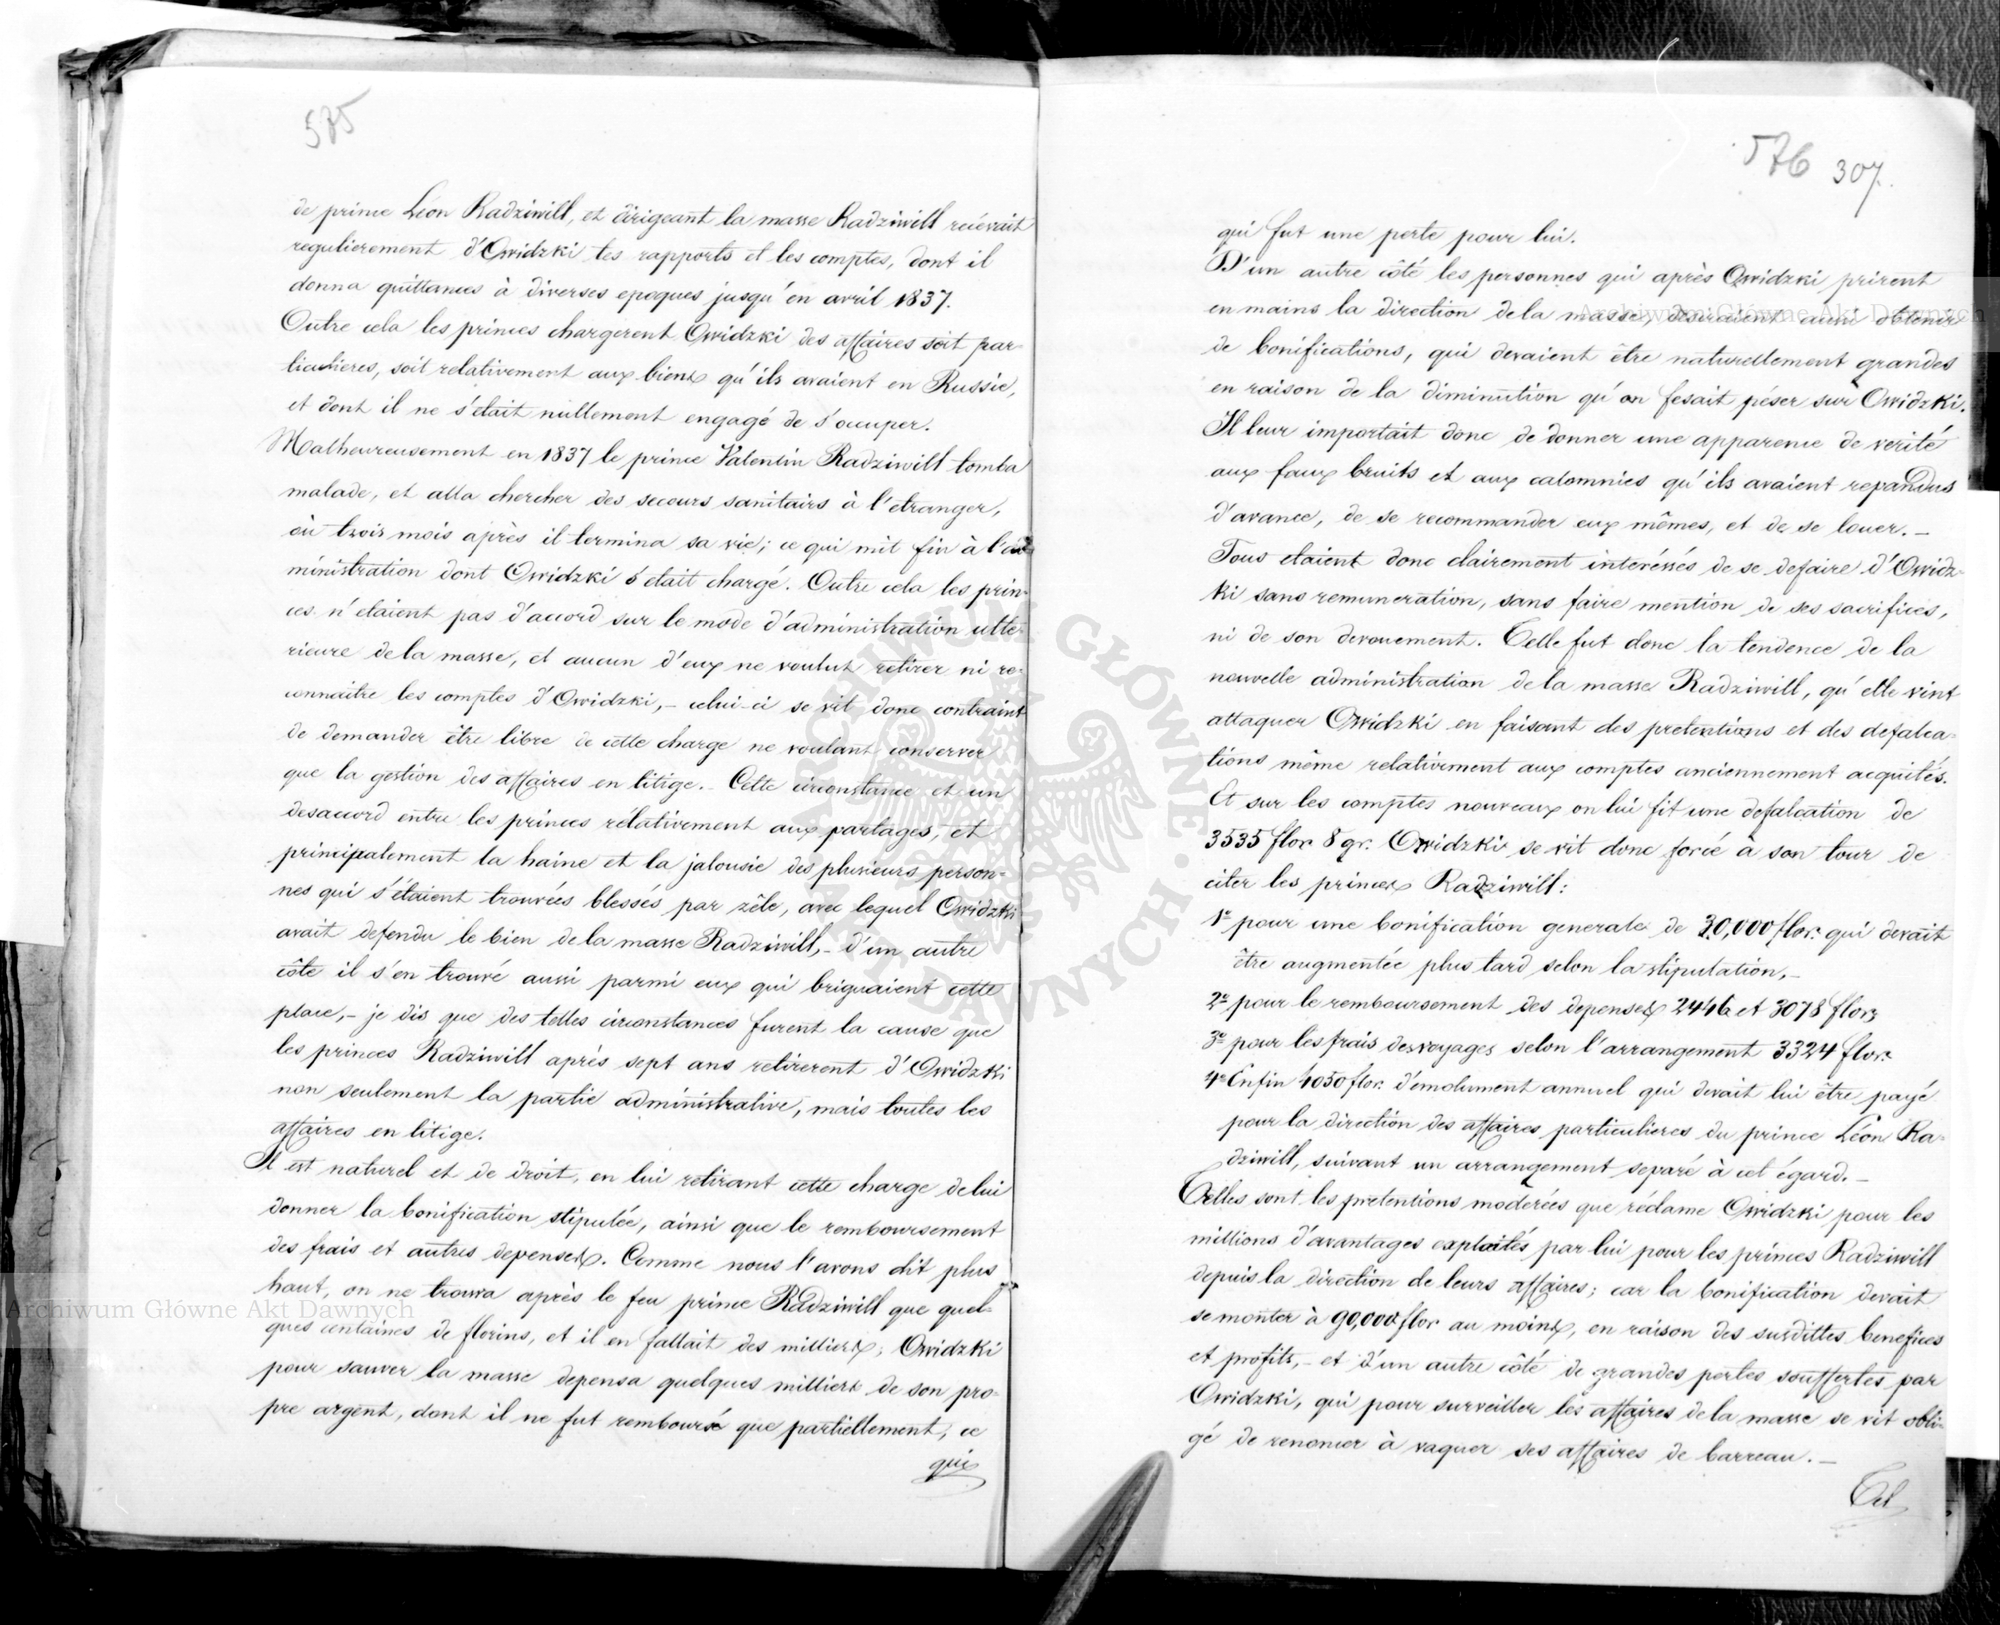 575
de prince Léon Radziwill, et dirigeant la masse Radziwill recévait
regulierement d'Owidzki les rapports et les comptes, dont il
donna quittances à diverses epoques jusqu'en avril 1837.
Outre cela les princes chargerent Owidzki des affaires soit par-
ticulieres, soit relativement aux biens qu'ils avaient en Russie,
et dont il ne s'etait nullement engagé de s'occuper.
Malheureusement en 1837 le prince Valentin Radziwill tomba
malade, et alla chercher des secours sanitairs à l'etranger,
où trois mois après il termina sa vie; ce qui mit fin à l'ad-
ministration dont Owidzki s'etait chargé. Outre cela les prin-
ces n'etaient pas d'accord sur le mode d'administration ulte-
rieure de la masse, et aucun d'eux ne voulut retirer ni re-
connaitre les comptes d'Owidzki,- celui-ci se vit donc contraint
de demander être libre de cette charge ne voulant conserver
que la gestion des affaires en litige.- Cette circonstance et un
desaccord entre les princes rélativement aux partages, et
principalement la haine et la jalousie des plusieurs person-
nes qui s'étaient trouvées blessés par zêle, avec lequel Owidzki
avait defendu le bien de la masse Radziwill,- d'un autre
côte il s'en trouvé aussi parmi eux qui briguaient cette
place,- je dis que des telles circonstances furent la cause que
les princes Radziwill après sept ans retirerent d'Owidzki
non seulement la partie administrative, mais toutes les
affaires en litige.
Il est naturel et de droit, en lui retirant cette charge de lui
donner la bonification stipulée, ainsi que le remboursement
des frais et autres depenses. Comme nous l'avons dit plus
haut, on ne trouva après le feu prince Radziwill que quel-
ques centaines de florins, et il en fallait des milliers; Owidzki
pour sauver la masse depensa quelques milliers de son pro-
pre argent, dont il ne fut remboursé que partiellement, ce
qui
576 307.
qui fut une perte pour lui.
D'un autre côté les personnes qui après Owidzki prirent
en mains la direction de la masse, desiraient aussi obtenir
de bonifications, qui devaient être naturellement grandes
en raison de la diminution qu'on fesait péser sur Owidzki.
Il leur importait donc de donner une apparence de verité
aux faux bruits et aux calomnies qu'ils avaient repandus
d'avance, de se recommander eux mêmes, et de se louer.-
Tous etaient donc clairement intéréssés de se defaire d'Owidz-
ki sans remuneration, sans faire mention de ses sacrifices,
ni de son devouement. Telle fut donc la tendence de la
nouvelle administration de la masse Radziwill, qu'elle vint
attaquer Owidzki en faisant des pretentions et des defalca-
tions même relativement aux comptes anciennement acquités.
Et sur les comptes nouveaux on lui fit une defalcation de
3535 flor. 8 gr. Owidzki se vit donc forcé à son tour de
citer les princes Radziwill:
1º pour une bonification generale de 30,000 flor. qui devait
être augmentée plus tard selon la stipulation,-
2º pour le remboursement des depenses 2446 et 3078 flor.
3º pour les frais des voyages selon l'arrangement 3324 flor.
4º Enfin 4050 flor. d'emolument annuel qui devait lui être payé
pour la direction des affaires particulieres du prince Léon Ra-
dziwill, suivant un arrangement separé à cet égard.-
Telles sont les pretentions moderées que réclame Owidzki pour les
millions d'avantages exploités par lui pour les princes Radziwill
depuis la direction de leurs affaires; car la bonification devait
se monter à 90,000 flor au moins, en raison des surdittes benefices
et profits,- et d'un autre côté de grandes pertes souffertes par
Owidzki, qui pour surveiller les affaires de la masse se vit obli-
gé de renoncer à vaquer ses affaires de barreau.-
Tel
Archiwum Główne Akt Dawnych
Archiwum Główne Akt Dawnych
ARCHIWUM GŁÓWNE AKT DAWNYCH